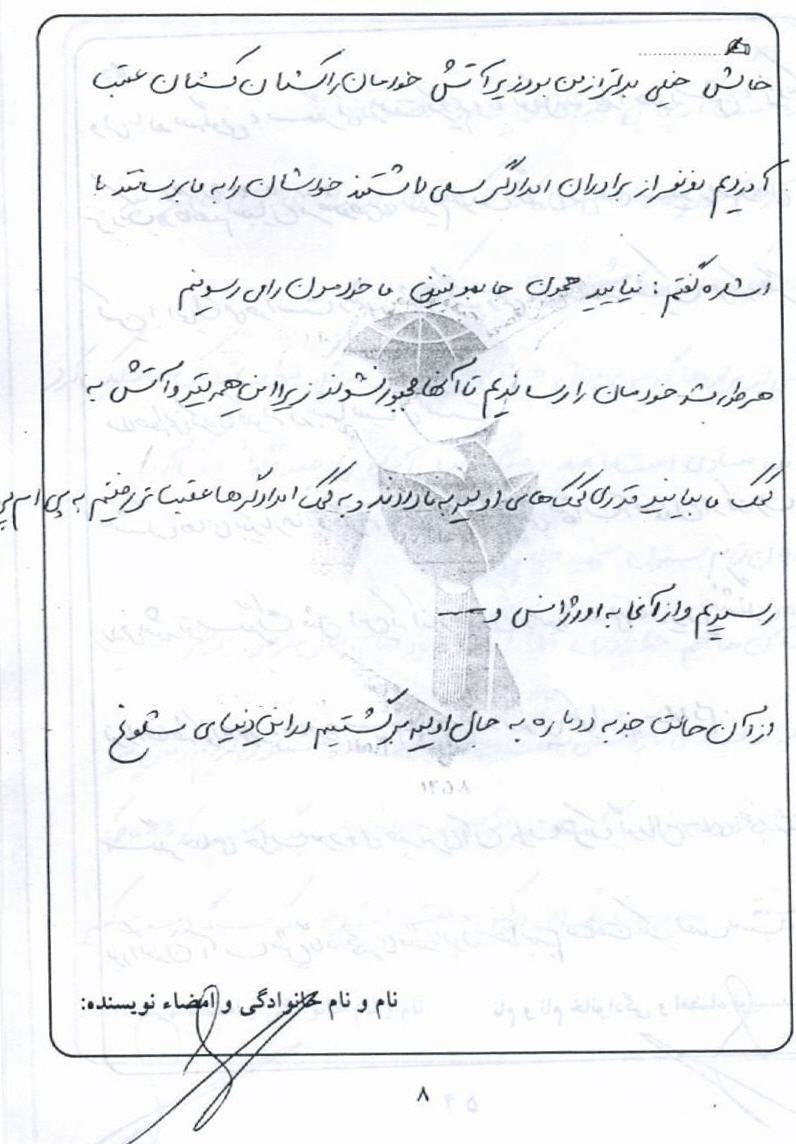 حالش خیلی بدتر از من بود زیر آتش خودمان را کشان کشان عقب
آوردیم دو نفر از برادران امدادگر سعی داشتند خودشان را به ما برسانند با
اشاره گفتم : نیایید همون جا بمونین ما خودمون رامی رسونیم
هر طور شد خودمان را رساندیم تا آنها مجبور نشوند زیر این همه تیر و آتش به
کمک ما بیایند قدری کمک‌های اولیه به ما دادند و به کمک امدادگرها عقب تا می رفتیم به پی ام پی
رسیدیم و از آنجا به اورژانس و
از آن حالت جذبه دوباره به حال اولیه برگشتیم در این دنیای شلوغ
نام و نام خانوادگی و امضاء نویسنده:
۸